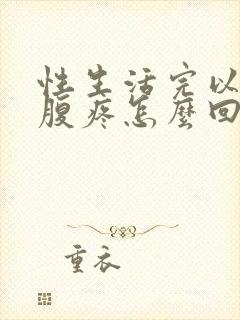 性生活完以
腹疼怎麼回
重衣